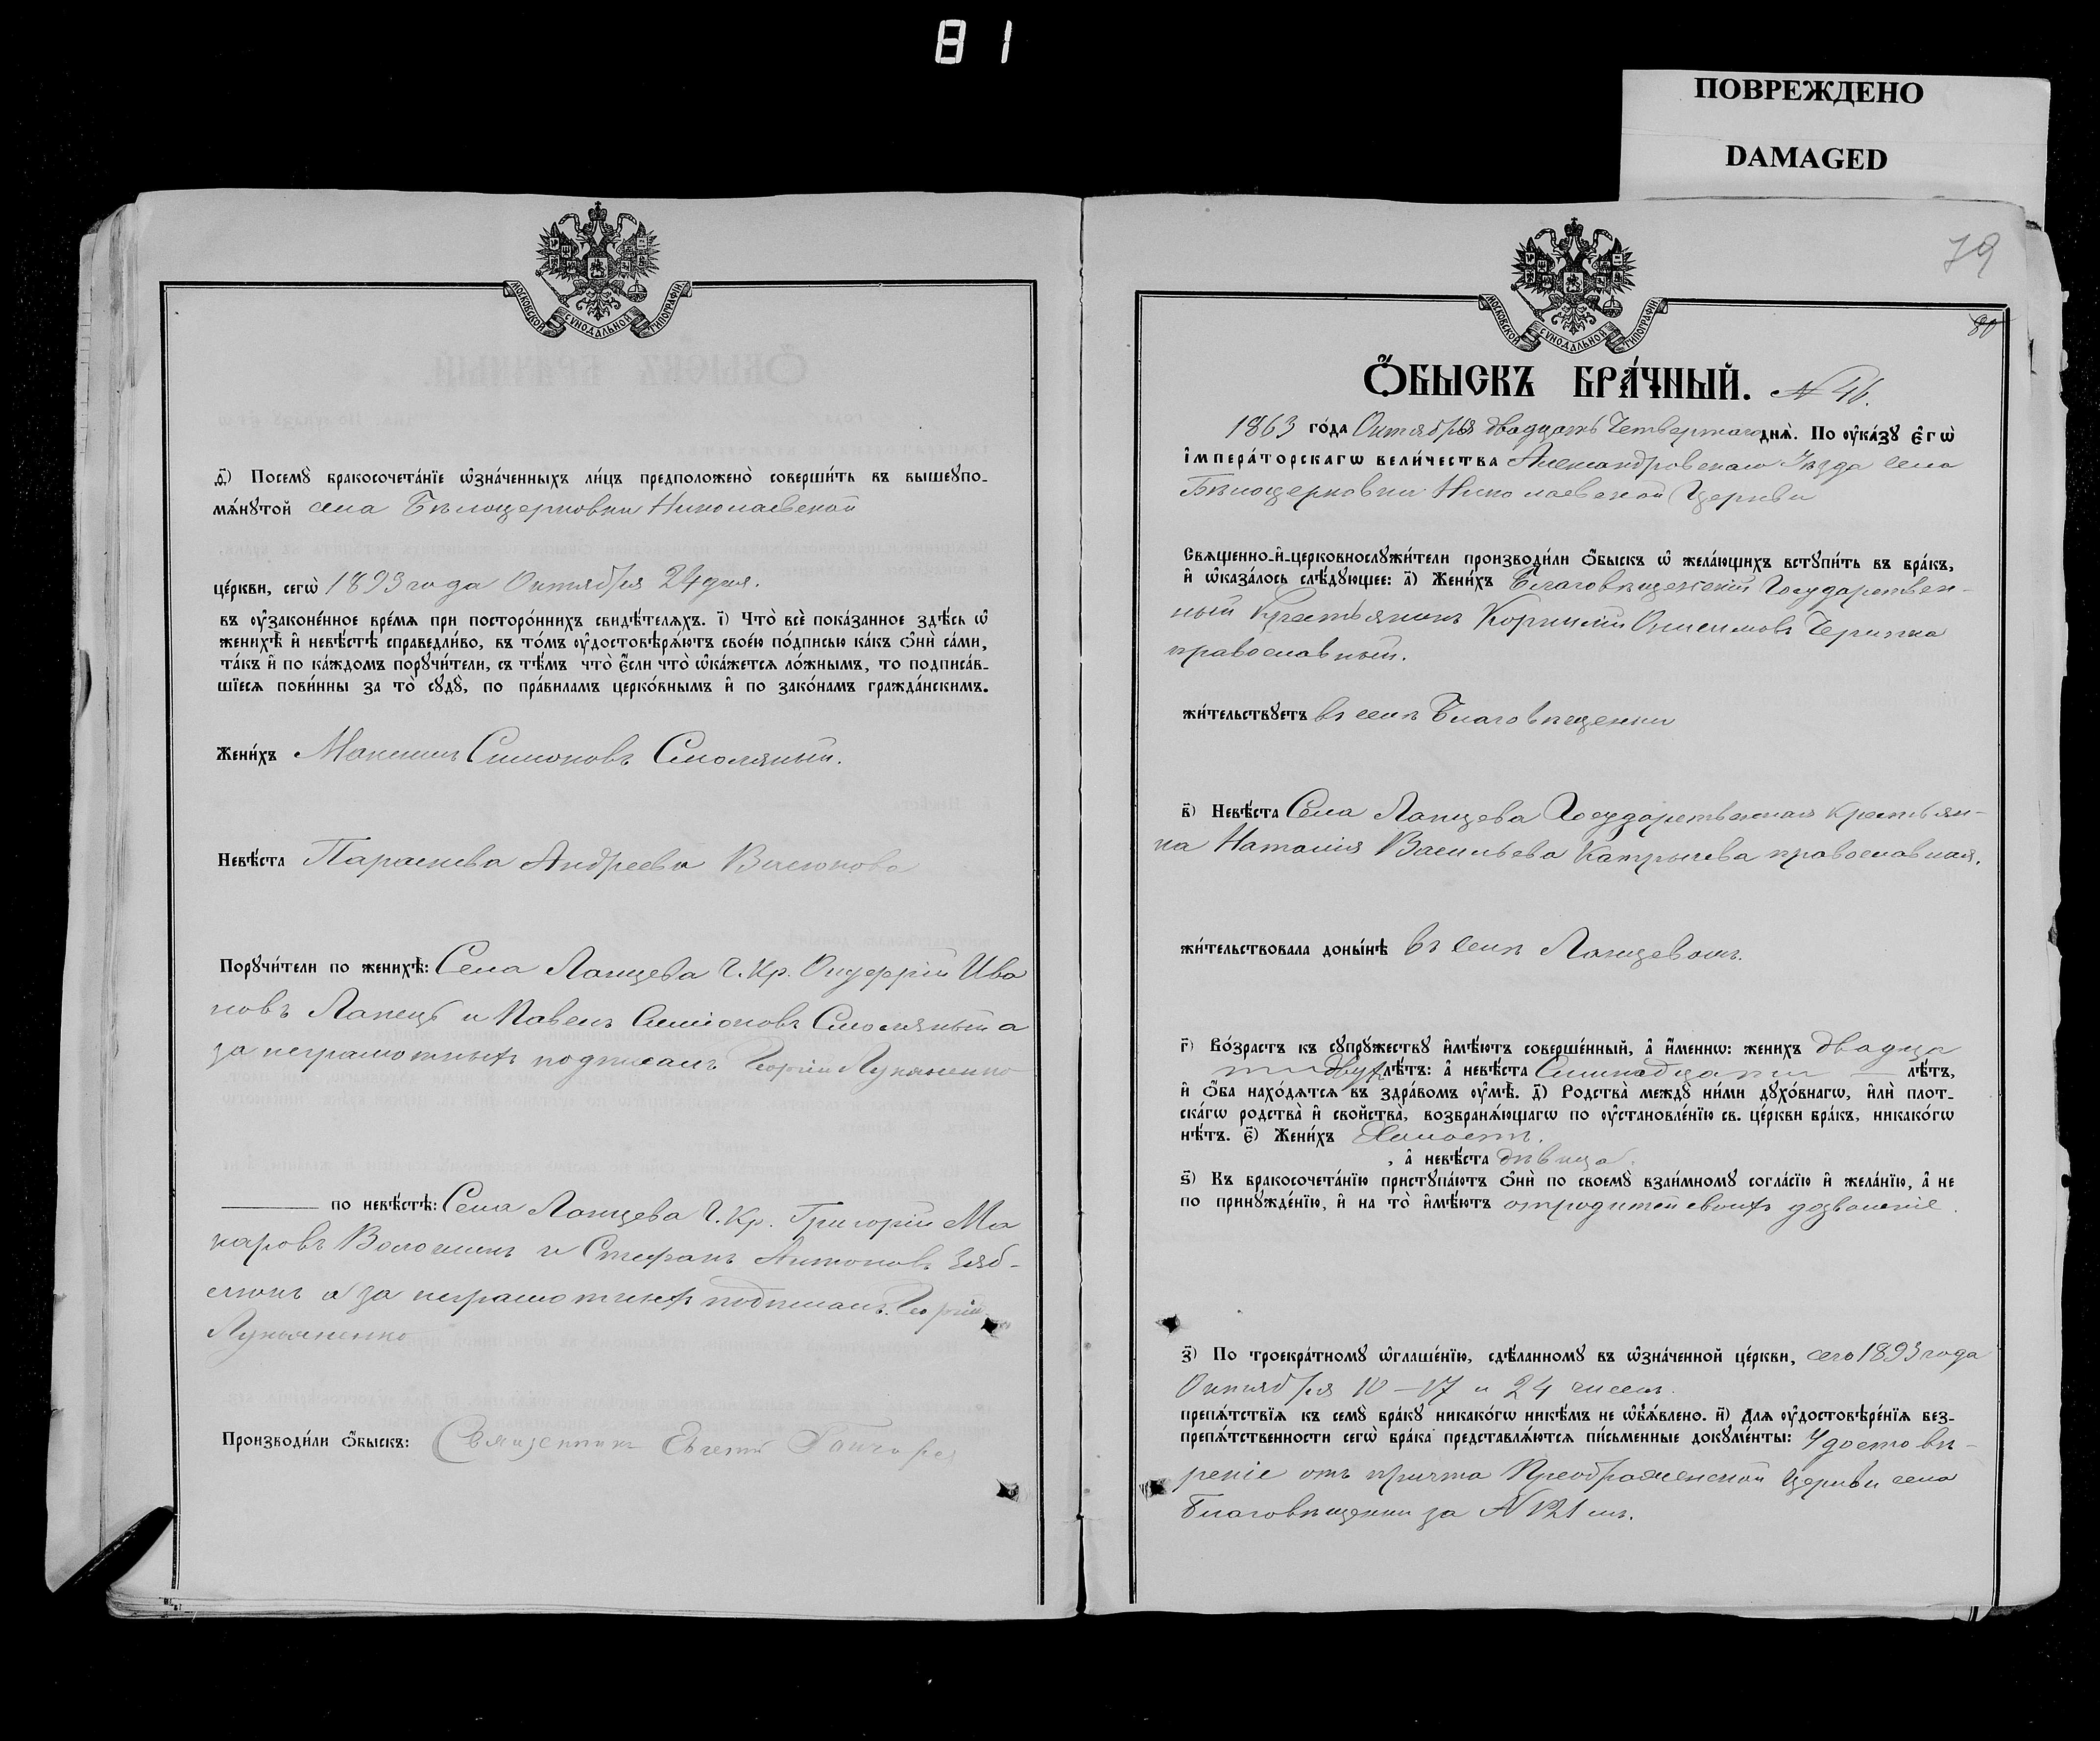 81
ПОВРЕЖДЕНО
DAMAGED
МОСКОВСКОЙ СѴНОДАЛЬНОЙ ТИПОГРАФІИ
д҃і) Посемꙋ̀ бракосочета́нїе ѡ҆зна́ченныхъ ли́цъ предположено̀ соверши́ть въ вышеꙋпо-
мѧ́нꙋтой села Бѣлоцерковки Николаевской
це́ркви, сегѡ̀ 1893 года Октября 24 дня.
въ ᲂу҆законе́нное вре́мѧ при посторо́ннихъ свидѣ́телѧхъ. і҃) Что̀ всѐ пока́занное здѣ́сь ѡ҆
женихѣ̀ и҆ невѣ́стѣ справедли́во, въ то́мъ ᲂу҆достовѣрѧ́ютъ свое́ю по́дписью ка́къ ѻ҆нѝ са́ми,
та́къ и҆ по ка́ждомъ порꙋчи́тели, съ тѣ́мъ что̀ є҆́сли что̀ ѡ҆ка́жетсѧ ло́жнымъ, то подписа́в-
шїесѧ пови́нны за то̀ сꙋдꙋ̀, по пра́виламъ церко́внымъ и҆ по зако́намъ гражда́нскимъ.
Жени́хъ Максимъ Симоновъ Смоляный.
Невѣ́ста Параскева Андреева Васюкова
Порꙋчи́тели по женихѣ̀: Села Лапцева Г. Кр. Ива
новъ Лапецъ и Павелъ Симіоновъ Смоляный а
за неграмотныхъ подписалъ Георгій Лукьяненко
по невѣ́стѣ: Села Лапцева Г. Кр. Григорій Ма
каровъ Волошинъ и Стефанъ Антоновъ
а за неграмотныхъ подписалъ Георгій
Лукьяненко
Производи́ли ѻ҆́быскъ: Священникъ Евгеній
79
80
МОСКОВСКОЙ СѴНОДАЛЬНОЙ ТИПОГРАФІИ
Ѻ҆́БЫСКЪ БРА́ЧНЫЙ. № 46.
1863 го́да Октября двадцать Четвертаго днѧ̀. По ᲂу҆ка́зꙋ є҆гѡ̀
і҆мпера́торскагѡ вели́чества Александровскаго Уѣзда села
Бѣлоцерковки Николаевской Церкви
Свѧщенно-и҆-церковнослꙋжи́тели производи́ли ѻ҆́быскъ ѡ҆ жела́ющихъ встꙋпи́ть въ бра́къ,
и҆ ѡ҆каза́лось слѣ́дꙋющее: а҃) Жени́хъ Благовѣщенскій Государствен-
ный Крестьянинъ Корнилій Онисимовъ Черипка
православный.
жи́тельствꙋетъ въ селѣ Благовѣщенки
в҃) Невѣ́ста Села Лапцева Государственная Крестьян-
ка Наталія Васильева Катрычева православная.
жи́тельствовала доны́нѣ въ селѣ Лапцевомъ.
г҃) Во́зрастъ къ сꙋпрꙋ́жествꙋ и҆мѣ́ютъ соверше́нный, а҆ и҆́меннѡ: жени́хъ двадца
ти двухъ лѣ́тъ: а҆ невѣ́ста Семнадцати — лѣ́тъ,
и҆ ѻ҆́ба нахо́дѧтсѧ въ здра́вомъ ᲂу҆мѣ̀. д҃) Родства̀ междꙋ̀ ни́ми дꙋхо́внагѡ, и҆лѝ плот-
ска́гѡ родства̀ и҆ свойства̀, возбранѧ́ющагѡ по ᲂу҆становле́нїю св. це́ркви бра́къ, никако́гѡ
нѣ́тъ. є҃) Жени́хъ Холостъ.
, а҆ невѣ́ста дѣвица.
ѕ҃) Къ бракосочета́нїю пристꙋпа́ютъ ѻ҆нѝ по своемꙋ̀ взаи́мномꙋ согла́сїю и҆ жела́нїю, а҆ не
по принꙋжде́нїю, и҆ на то̀ и҆мѣ́ютъ отродителей своихъ дозволеніе.
з҃) По троекра́тномꙋ ѡ҆глаше́нїю, сдѣ́ланномꙋ въ ѡ҆зна́ченной це́ркви, сего 1893 года
Октября 10 – 17 и 24 числъ.
препѧ́тствїѧ къ семꙋ̀ бра́кꙋ никако́гѡ никѣ́мъ не ѡ҆б̾ѧ́влено. и҃) Длѧ ᲂу҆достовѣре́нїѧ без-
препѧ́тственности сегѡ̀ бра́ка представлѧ́ютсѧ пи́сьменные докꙋме́нты: Удостовѣ-
реніе отъ причта Преображенской Церкви села
Благовѣщенки за № 121 мъ.